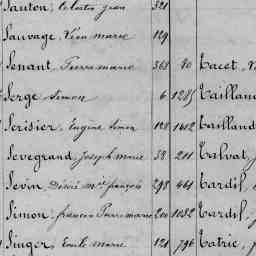 Sauton, Celestin jean 321
Sauvage, Léon marie 129
Senant, Pierre marie 368 40 Tacet, V
Serge Simon 6 1285 Tailland
Serisier, Eugène Simon 128 1412 Tailland
Sevegrand, Joseph marie 38 211 Talvat, J
Sevin, Désiré françois 298 461 Tardif,
Simon, francois Pierre marie 200 1032 Tardif, J
Singer, Emile marie 121 796 Tatrie,